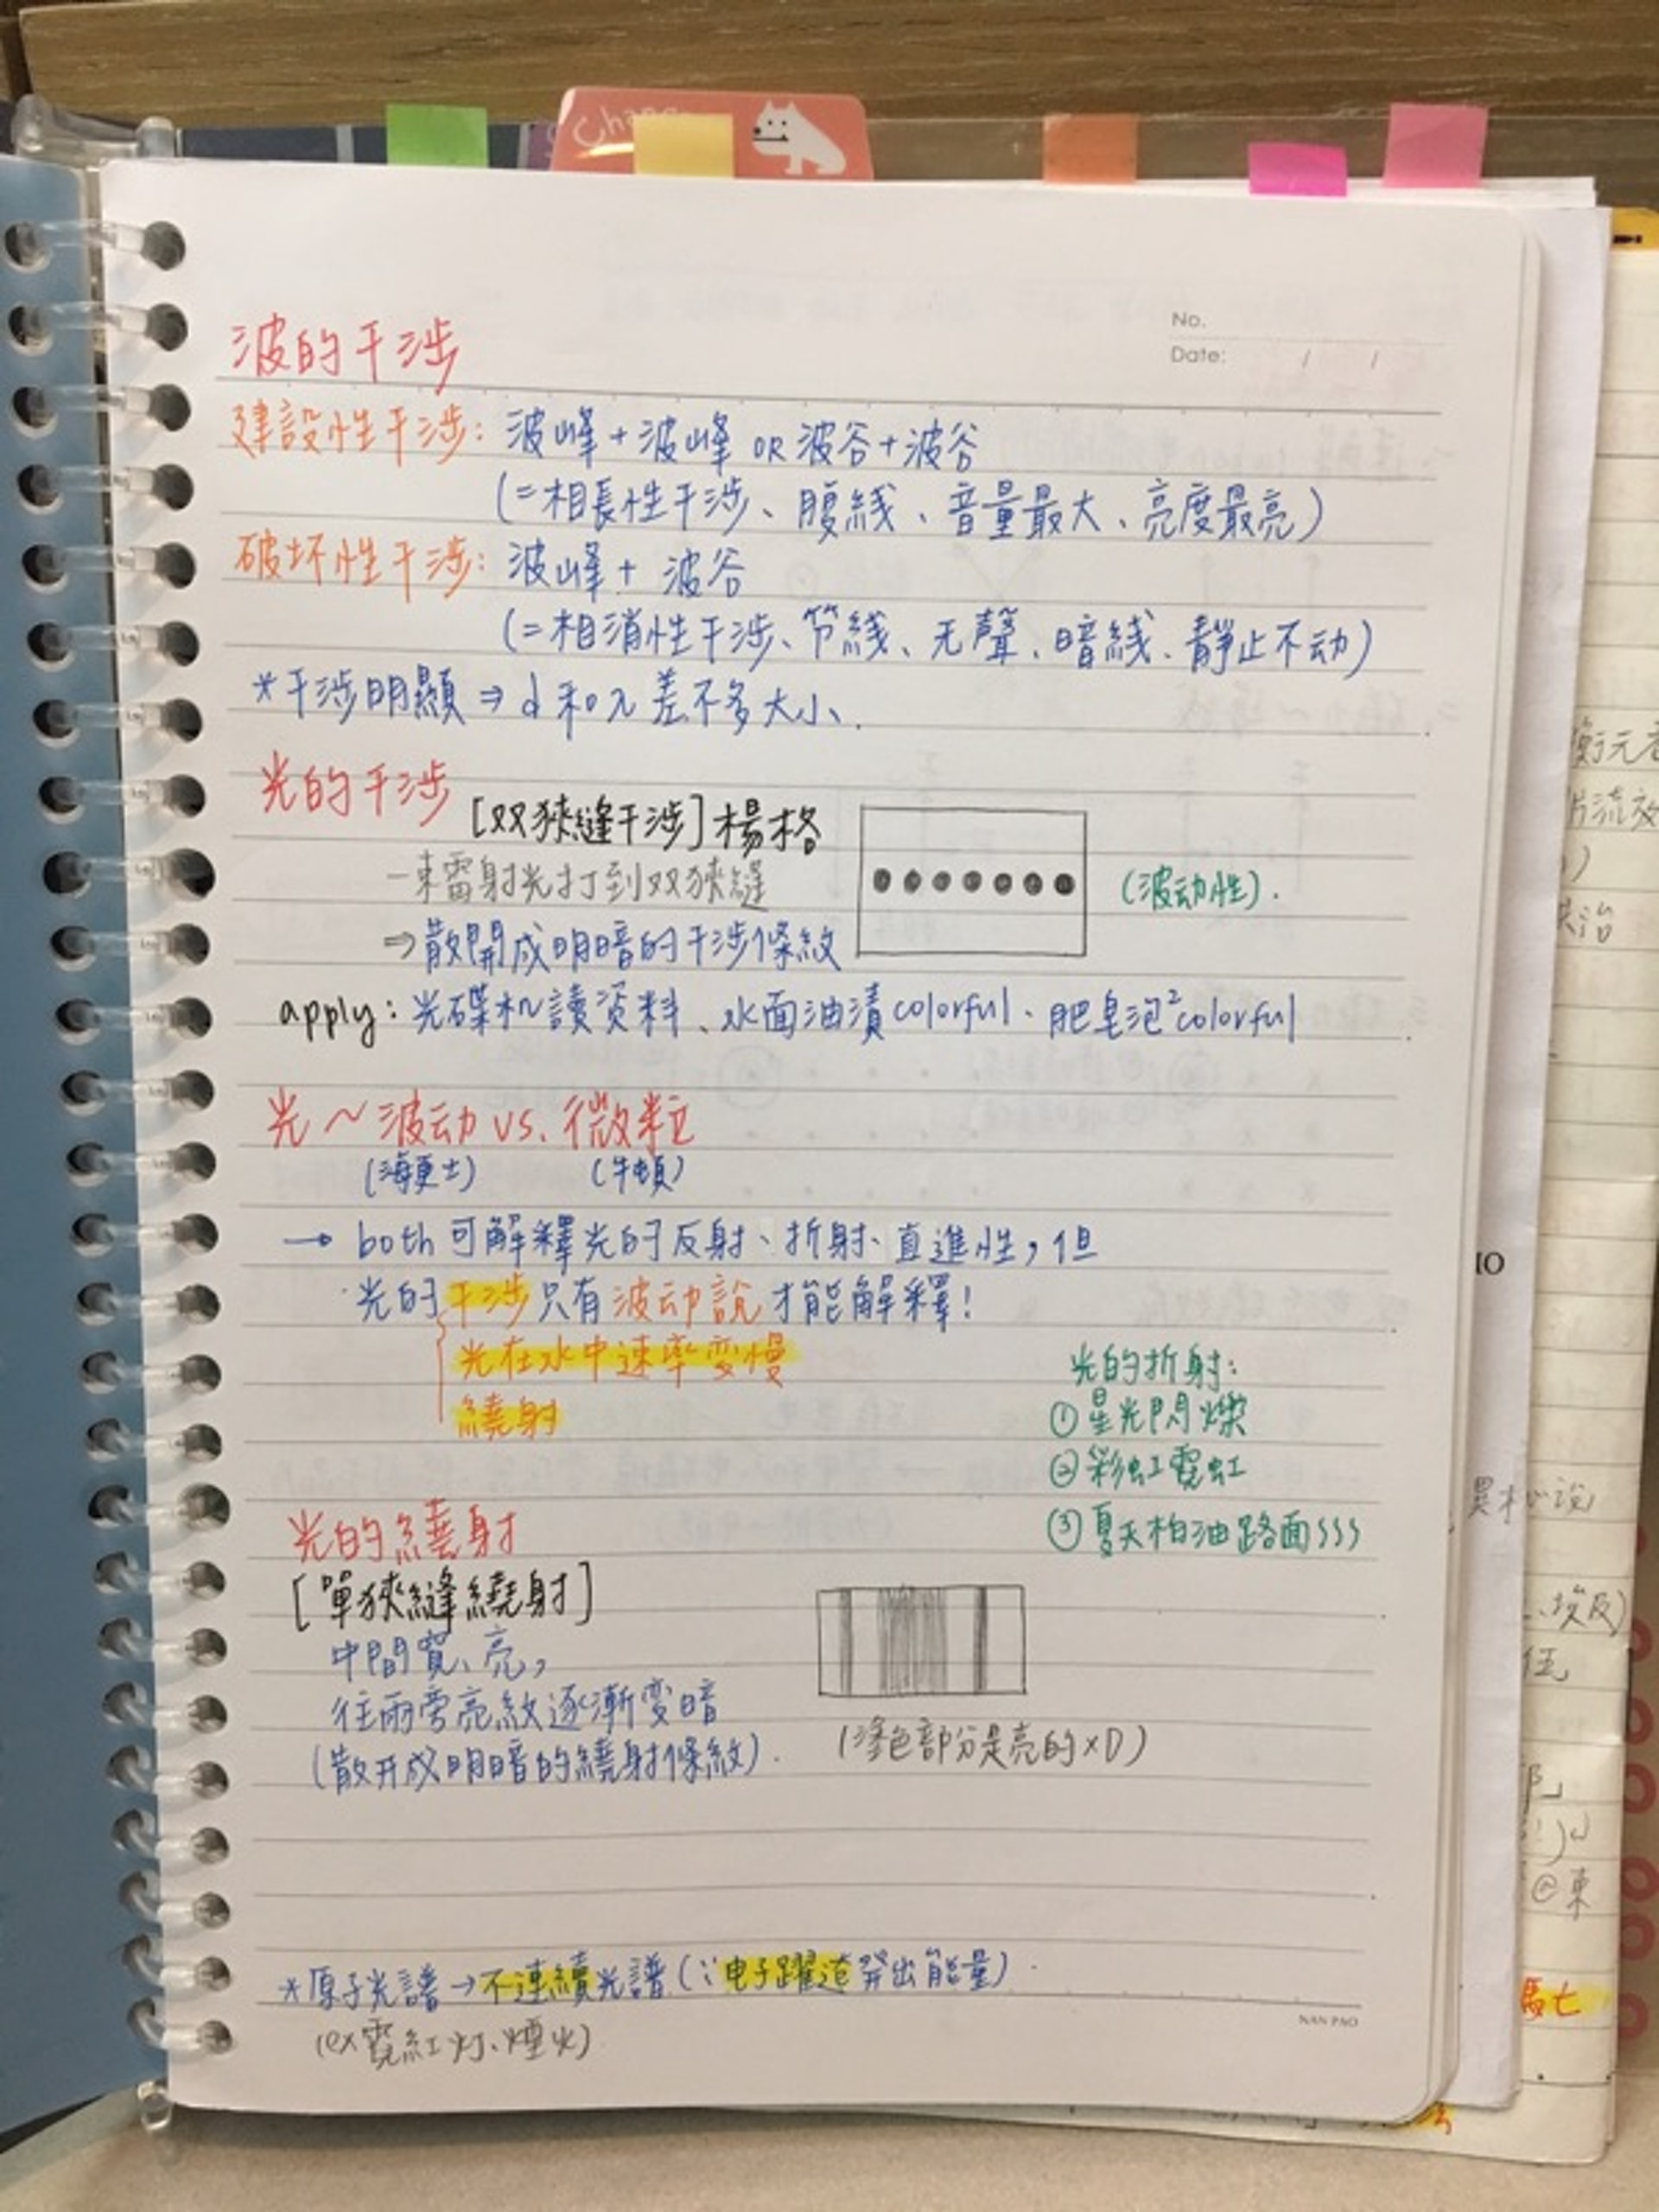 Chang
No.
Date: / /
波的干涉
建設性干涉：波峰+波峰 OR 波谷+波谷
(=相長性干涉、腹綫、音量最大、亮度最亮)
破坏性干涉：波峰+ 波谷
(=相消性干涉、節綫、无聲、暗綫、靜止不动)
*干涉明顯⇒d和λ差不多大小.
光的干涉
[双狹縫干涉]楊格
一束雷射光打到双狹縫
(波动性).
⇒散開成明暗的干涉條紋
apply：光碟机讀資料、水面油漬colorful、肥皂泡²colorful
光～波动 vs. 微粒
(海更士) (牛頓)
→ both可解釋光的反射、折射、直進性，但
光的干涉只有波动說才能解釋!
光在水中速率變慢
繞射
光的折射：
①星光閃爍
②彩虹霓虹
③夏天柏油路面SSS
光的繞射
[單狹縫繞射]
中間寬、亮，
往兩旁亮紋逐漸變暗
(散开成明暗的繞射條紋).
(塗色部分是亮的xD)
*原子光譜→不連續光譜(∵电子躍迁發出能量).
(ex霓紅灯、煙火)
NAN PAO